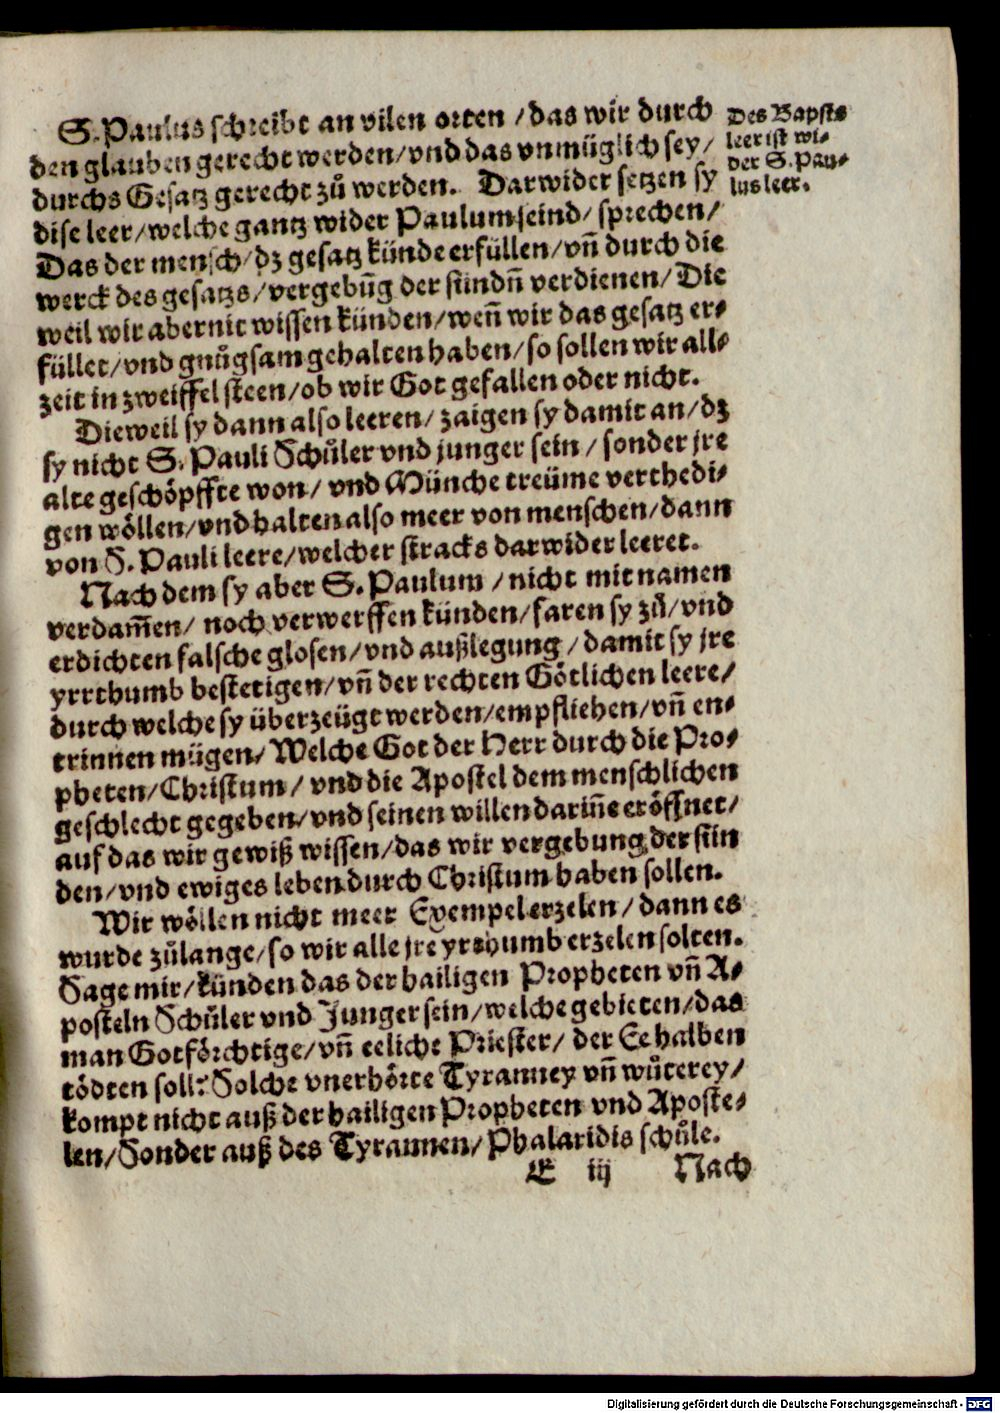 S. Paulus schreibt an vilen orten / das wir durch
den glauben gerecht werden / vnd das vnmüglich sey /
durchs Gesatz gerecht zů werden. Darwider setzen sy
dise leer / welche gantz wider Paulum seind / sprechen /
Das der mensch / dz gesatz künde erfüllen / vñ durch die
werck des gesatzs / vergebũg der sündñ verdienen / Die
weil wir aber nit wissen künden / weñ wir das gesatz er⸗
füllet / vnd gnůgsam gehalten haben / so sollen wir all⸗
zeit in zweiffel steen / ob wir Got gefallen oder nicht.
Dieweil sy dann also leeren / zaigen sy damit an / dz
sy nicht S. Pauli Schůler vnd junger sein / sonder jre
alte geschöpffte won / vnd Münche treüme verthedi⸗
gen wöllen / vnd halten also meer von menschen / dann
von S. Pauli leere / welcher stracks darwider leeret.
Nach dem sy aber S. Paulum / nicht mit namen
verdam̃en / noch verwerffen künden / faren sy zů / vnd
erdichten falsche glosen / vnd außlegung / damit sy jre
yrrthumb bestetigen / vñ der rechten Götlichen leere /
durch welche sy überzeügt werden / empfliehen / vñ en⸗
trinnen mügen / Welche Got der Herr durch die Pro⸗
pheten / Christum / vnd die Apostel dem menschlichen
geschlecht gegeben / vnd seinen willen dariñe eröffnet /
auf das wir gewiß wissen / das wir vergebung der sün
den / vnd ewiges leben durch Christum haben sollen.
Wir wöllen nicht meer Exempel erzelen / dann es
wurde zůlange / so wir alle jre yrthumb erzelen solten.
Sage mir / künden das der hailigen Propheten vñ A⸗
posteln Schůler vnd Junger sein / welche gebieten / das
man Gotförchtige / vñ eeliche Priester / der Ee halben
tödten soll? Solche vnerhörte Tyranney vñ wůterey /
kompt nicht auß der hailigen Propheten vnd Aposte⸗
len / Sonder auß des Tyrannen / Phalaridis schůle.
E iij Nach
Des Bapsts
leer ist wi⸗
der S. Pau⸗
lus leer.
Digitalisierung gefördert durch die Deutsche Forschungsgemeinschaft - DFG